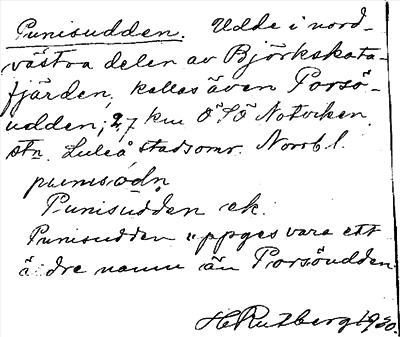 Punisudden. Udde i nord-
västra delen av Björkskata-
fjärden, kallas även Porsö-
udden; 2,7 km ÖSÖ Notviken
stn. Luleå stadsomr. Norrb. l.
Punisudden ek.
Punisudden uppges vara ett
äldre namn än Porsöudden.
H Rutberg 1930.